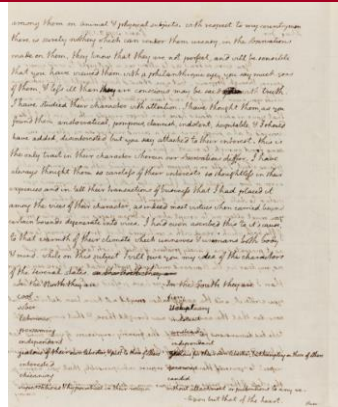 among them on animal & physical subjects. with respect to my countrymen
there is surely nothing which can render them uneasy, in the observations
made on them. they know that they are not perfect, and will be sensible
that you have viewed them with a philanthropic eye. you say much good
of them, & less ill than they are conscious may be said with truth.
I have studied their character with attention. I have thought them, as you
found them, aristocratical, pompous, clannish, indolent, hospitable, & I should
have added, disinterested, but you say attached to their interest. this is
the only trait in their character wherein our observations differ. I have
always thought them so careless of their interests, so thoughtless in their
expences and in all their transactions of business that I had placed it
among the vices of their character, as indeed most virtues when carried beyond
certain bounds degenerate into vices. I had even ascribed this to it's cause,
to that warmth of their climate which unnerves & unmans both body
& mind. while on this subject I will give you my idea of the characters
of the several states.
In the North they are In the South they are
cool fiery
sober Voluptuary
laborious indolent
persevering unsteady
independant independant
jealous of their own liberties, & just to those of others zealous for their own liberties, but trampling on those of others
interested generous
chicaning candid
superstitious & hypocritical in their religion without attachment or pretensions to any re-
ligion but that of the heart.